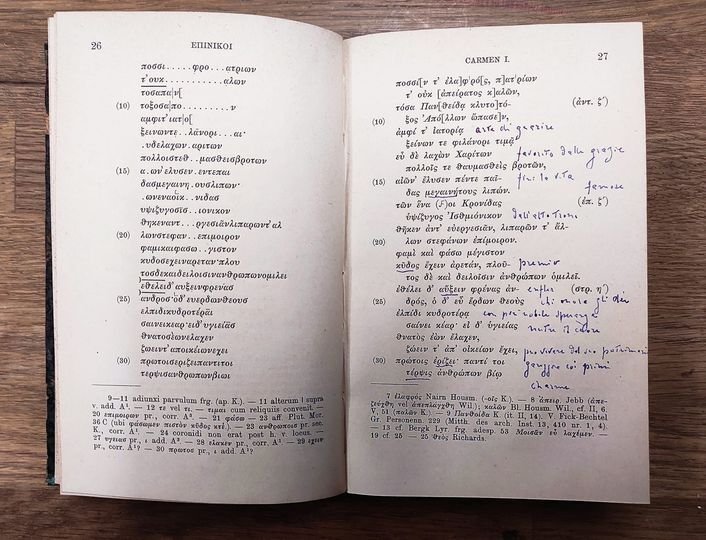 26
ΕΠΙΝΙΚΟΙ
ποσσι.....φρο...ατριων
τ'ουκ...........αλων
τοσαπαν[
(10) τοξοσα[πο..........ν
αμφιτ'ιατ[ο[
ξεινωντε..λανορι...αι·
.υδελαχων.αριτων
πολλοιστεθ..μασθεισβροτων
(15) α.ων'ελυσεν.εντεπαι
δασμεγαινη.ουσλιπων·
.ωνεναοϊκ..νιδας
υψιζυγοσῑσ..ιονικον
θηκεναντ...ργεσιᾶνλιπαρωντ'αλ
(20) λωνστεφαν..επιμοιρον
φαμικαιφασω..γιστον
κυδοσεχειναρεταν·πλου
τοσδεκαιδειλοισινανθρωπωνομιλει
εθελειδ'αυξεινφρενασ
(25) ανδροσ·ὁδ'ευερδωνθεουσ
ελπιδικυδροτέρᾱι
σαινεικεαρ·ειδ'υγιείᾱσ
θνατοσἐωνελαχεν
ζωειντ'αποικείωνεχει
(30) πρωτοισεριζειπαντιτοι
τερψισανθρωπωνβίωι
9—11 adiunxi parvulum frg. (ap. K.). — 11 alterum ι supra
v. add. A¹. — 12 τε vel τι. — τιμαι cum reliquis convenit. —
20 επιμοιρον pr., corr. A³. — 21 φάσω — 23 aff. Plut. Mor.
36 C (ubi φάσωμεν πιστὸν κῦδος κτἑ.). — 23 ανθρωποισ pr. sec.
K., corr. A¹. — 24 coronidi non erat post h. v. locus. —
27 υγειασ pr., ι add. A³. — 28 ελακεν pr., corr. A¹. — 29 εχειν
pr., corr. A¹? — 30 πρωτοσ pr., ι add. A¹?
CARMEN I.
27
ποσσί[ν τ' ἐλα]φ[ρό[ς, π]ατ[ρίων
τ' οὐκ [ἀπείρατος κ]αλῶν,
τόσα Παν[θείδᾳ κλυτο]τό- (ἀντ. ζ')
(10) ξος Ἀπό[λλων ὤπασε]ν,
ἀμφί τ' ἰατορίᾳ arte di guarire
ξείνων τε φιλάνορι τιμᾷ
εὖ δὲ λαχὼν Χαρίτων favorito dalle grazie
πολλοῖς τε θαυμασθεὶς βροτῶν,
(15) αἰῶν' ἔλυσεν πέντε παῖ- finì la vita
δας μεγαινήτους λιπών. famose
τῶν ἕνα (ϝ)οι Κρονίδας (ἐπ. ζ')
ὑψίζυγος Ἰσθμιόνικον dall'alto trono
θῆκεν ἀντ' εὐεργεσιᾶν, λιπαρῶν τ' ἄλ-
(20) λων στεφάνων ἐπίμοιρον.
φαμὶ καὶ φάσω μέγιστον
κῦδος ἔχειν ἀρετάν, πλοῦ- premio
τος δὲ καὶ δειλοῖσιν ἀνθρώπων ὁμιλεῖ,
ἐθέλει δ' αὔξειν φρένας ἀν- enfler (στρ. η')
(25) δρός, ὁ δ' εὖ ἔρδων θεοὺς chi onora gli dei
ἐλπίδι κυδροτέρᾳ con più nobile speranza
σαίνει κέαρ. εἰ δ' ὑγιείας nutre il cuore
θνατὸς ἐὼν ἔλαχεν,
ζώειν τ' ἀπ' οἰκείων ἔχει, può vivere del suo patrimonio
(30) πρώτοις ἐρίζει· παντί τοι gareggia coi primi
τέρψις ἀνθρώπων βίῳ
charme
7 ἐλαφρός Nairn Housm. (-οῖς K.). — 8 ἄπειρ. Jebb (ἀπε-
ζεύχθη vel ἀπεπλάγχθη Wil.); καλῶν Bl. Housm. Wil., cf. II, 6.
V, 51 (παλῶν K.). — 9 Πανθοίδᾳ K. (it II, 14). V. Fick-Bechtel
Gr. Personenn. 229 (Mitth. des arch. Inst. 13, 410 nr. 1, 4).
— 13 cf. Bergk Lyr. frg. adesp. 53 Μοισᾶν εὖ λαχέμεν. —
19 cf. 25 — 25 θεὸς Richards.